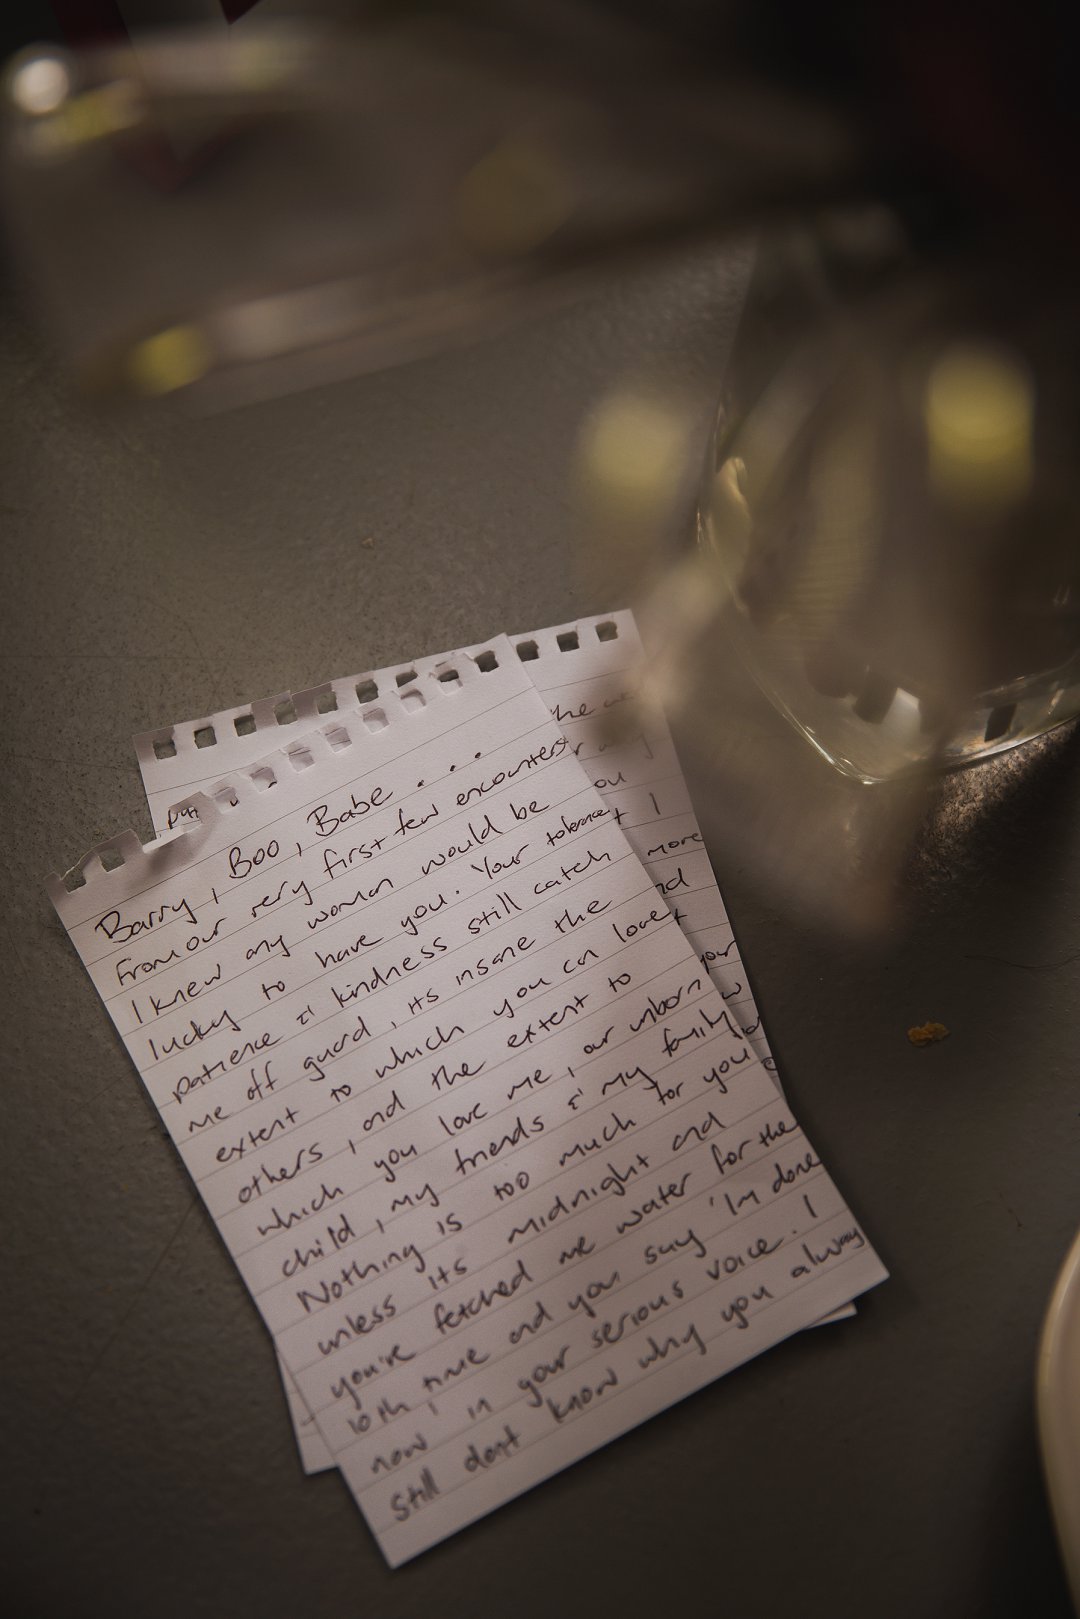 Barry, Boo, Babe . . . .
From our very first few encounters
I knew any woman would be
lucky to have you. Your tolerance,
patience & kindness still catch
me off guard, its insane the
extent to which you can love
others, and the extent to
which you love me, our unborn
child, my friends & my family.
Nothing is too much for you
unless its midnight and
you're fetched me water for the
10th time and you say 'Im done
now' in your serious voice. I
still dont know why you always
the
you
I
more
nd
your